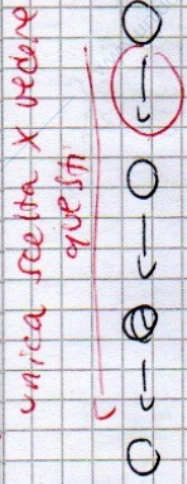 unica scelta x vedere
questi